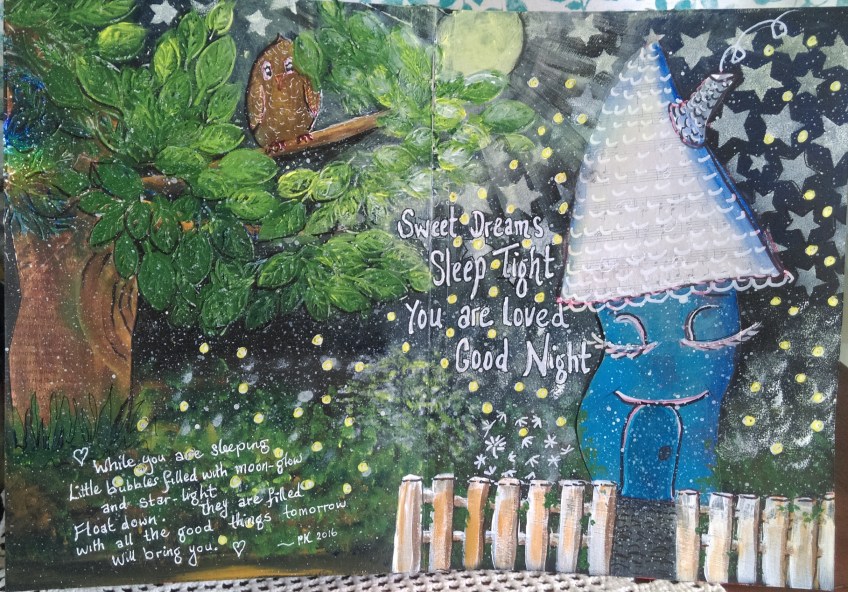 Sweet Dreams
Sleep Tight
You are Loved
Good Night
♡ While you are sleeping
Little bubbles filled with moon-glow
and star-light
Float down. they are filled
with all the good things tomorrow
will bring you. ♡
~ PK 2016